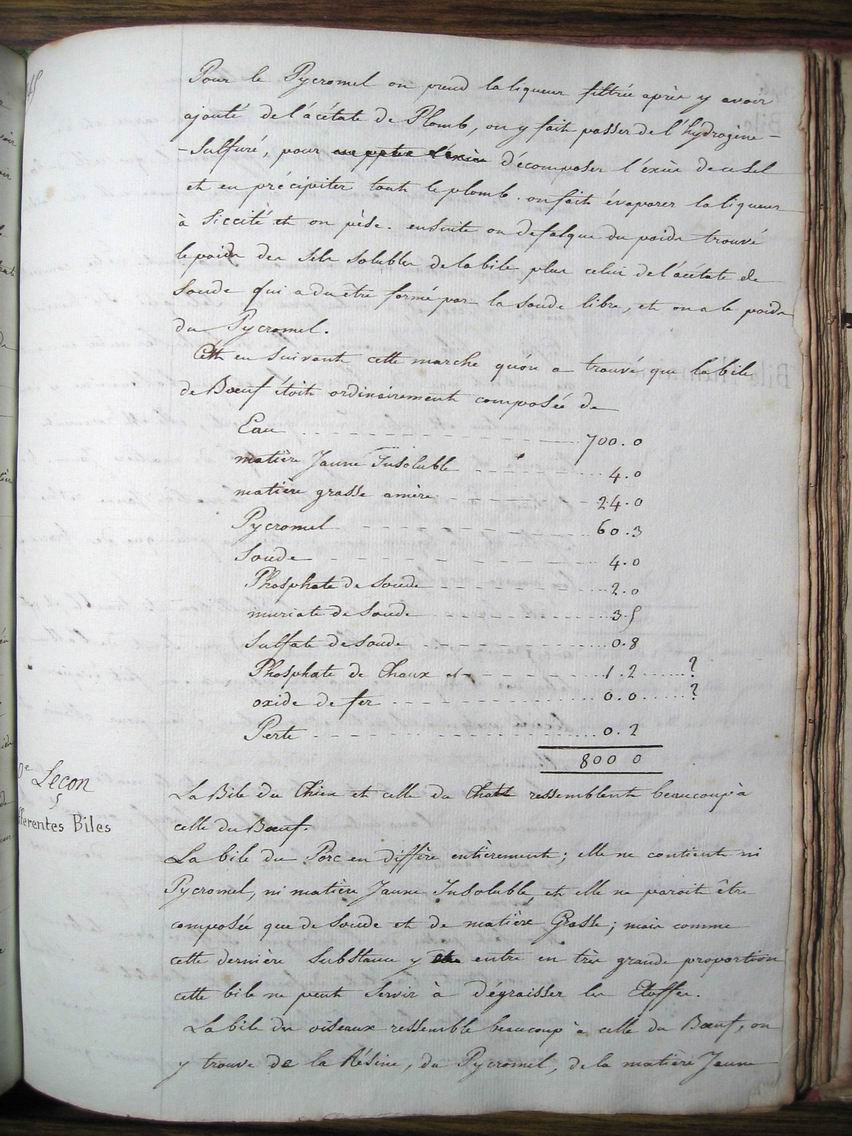 Pour le Pycromel on prend la liqueur filtrée après y avoir
ajouté de l'acétate de Plomb, on y fait passer de l'hydrogène-
-Sulfuré, pour décomposer l'excès de ce sel
et en précipiter tout le plomb. on fait évaporer la liqueur
à Siccité et on pèse. ensuite on défalque du poids trouvé
le poids des sels solubles de la bile plus celui de l'acétate de
Soude qui a du être formé par la soude libre, et on a le poids
du Pycromel.
C'est en suivant cette marche qu'on a trouvé que la bile
de Bœuf étoit ordinairement composée de
Eau 700.0
matière Jaune Insoluble 4.0
matière grasse amère 24.0
Pycromel 60.3
Soude 4.0
Phosphate de Soude 2.0
muriate de Soude 3.5
Sulfate de soude 0.8
Phosphate de Chaux et 1.2 ?
oxide de fer 0.0 ?
Perte 0.2
800 0
Leçon
fferentes Biles
La Bile du Chien et celle du Chat ressemblent beaucoup à
celle du Bœuf.
La bile du Porc en diffère entièrement; elle ne contient ni
Pycromel, ni matière Jaune Insoluble, et elle ne paroit être
composée que de Soude et de matière Grasse; mais comme
cette dernière Substance y entre en très grande proportion
cette bile ne peut servir à dégraisser les Etoffes.
La bile des oiseaux ressemble beaucoup à celle du Bœuf, on
y trouve de la Résine, du Pycromel, de la matière Jaune